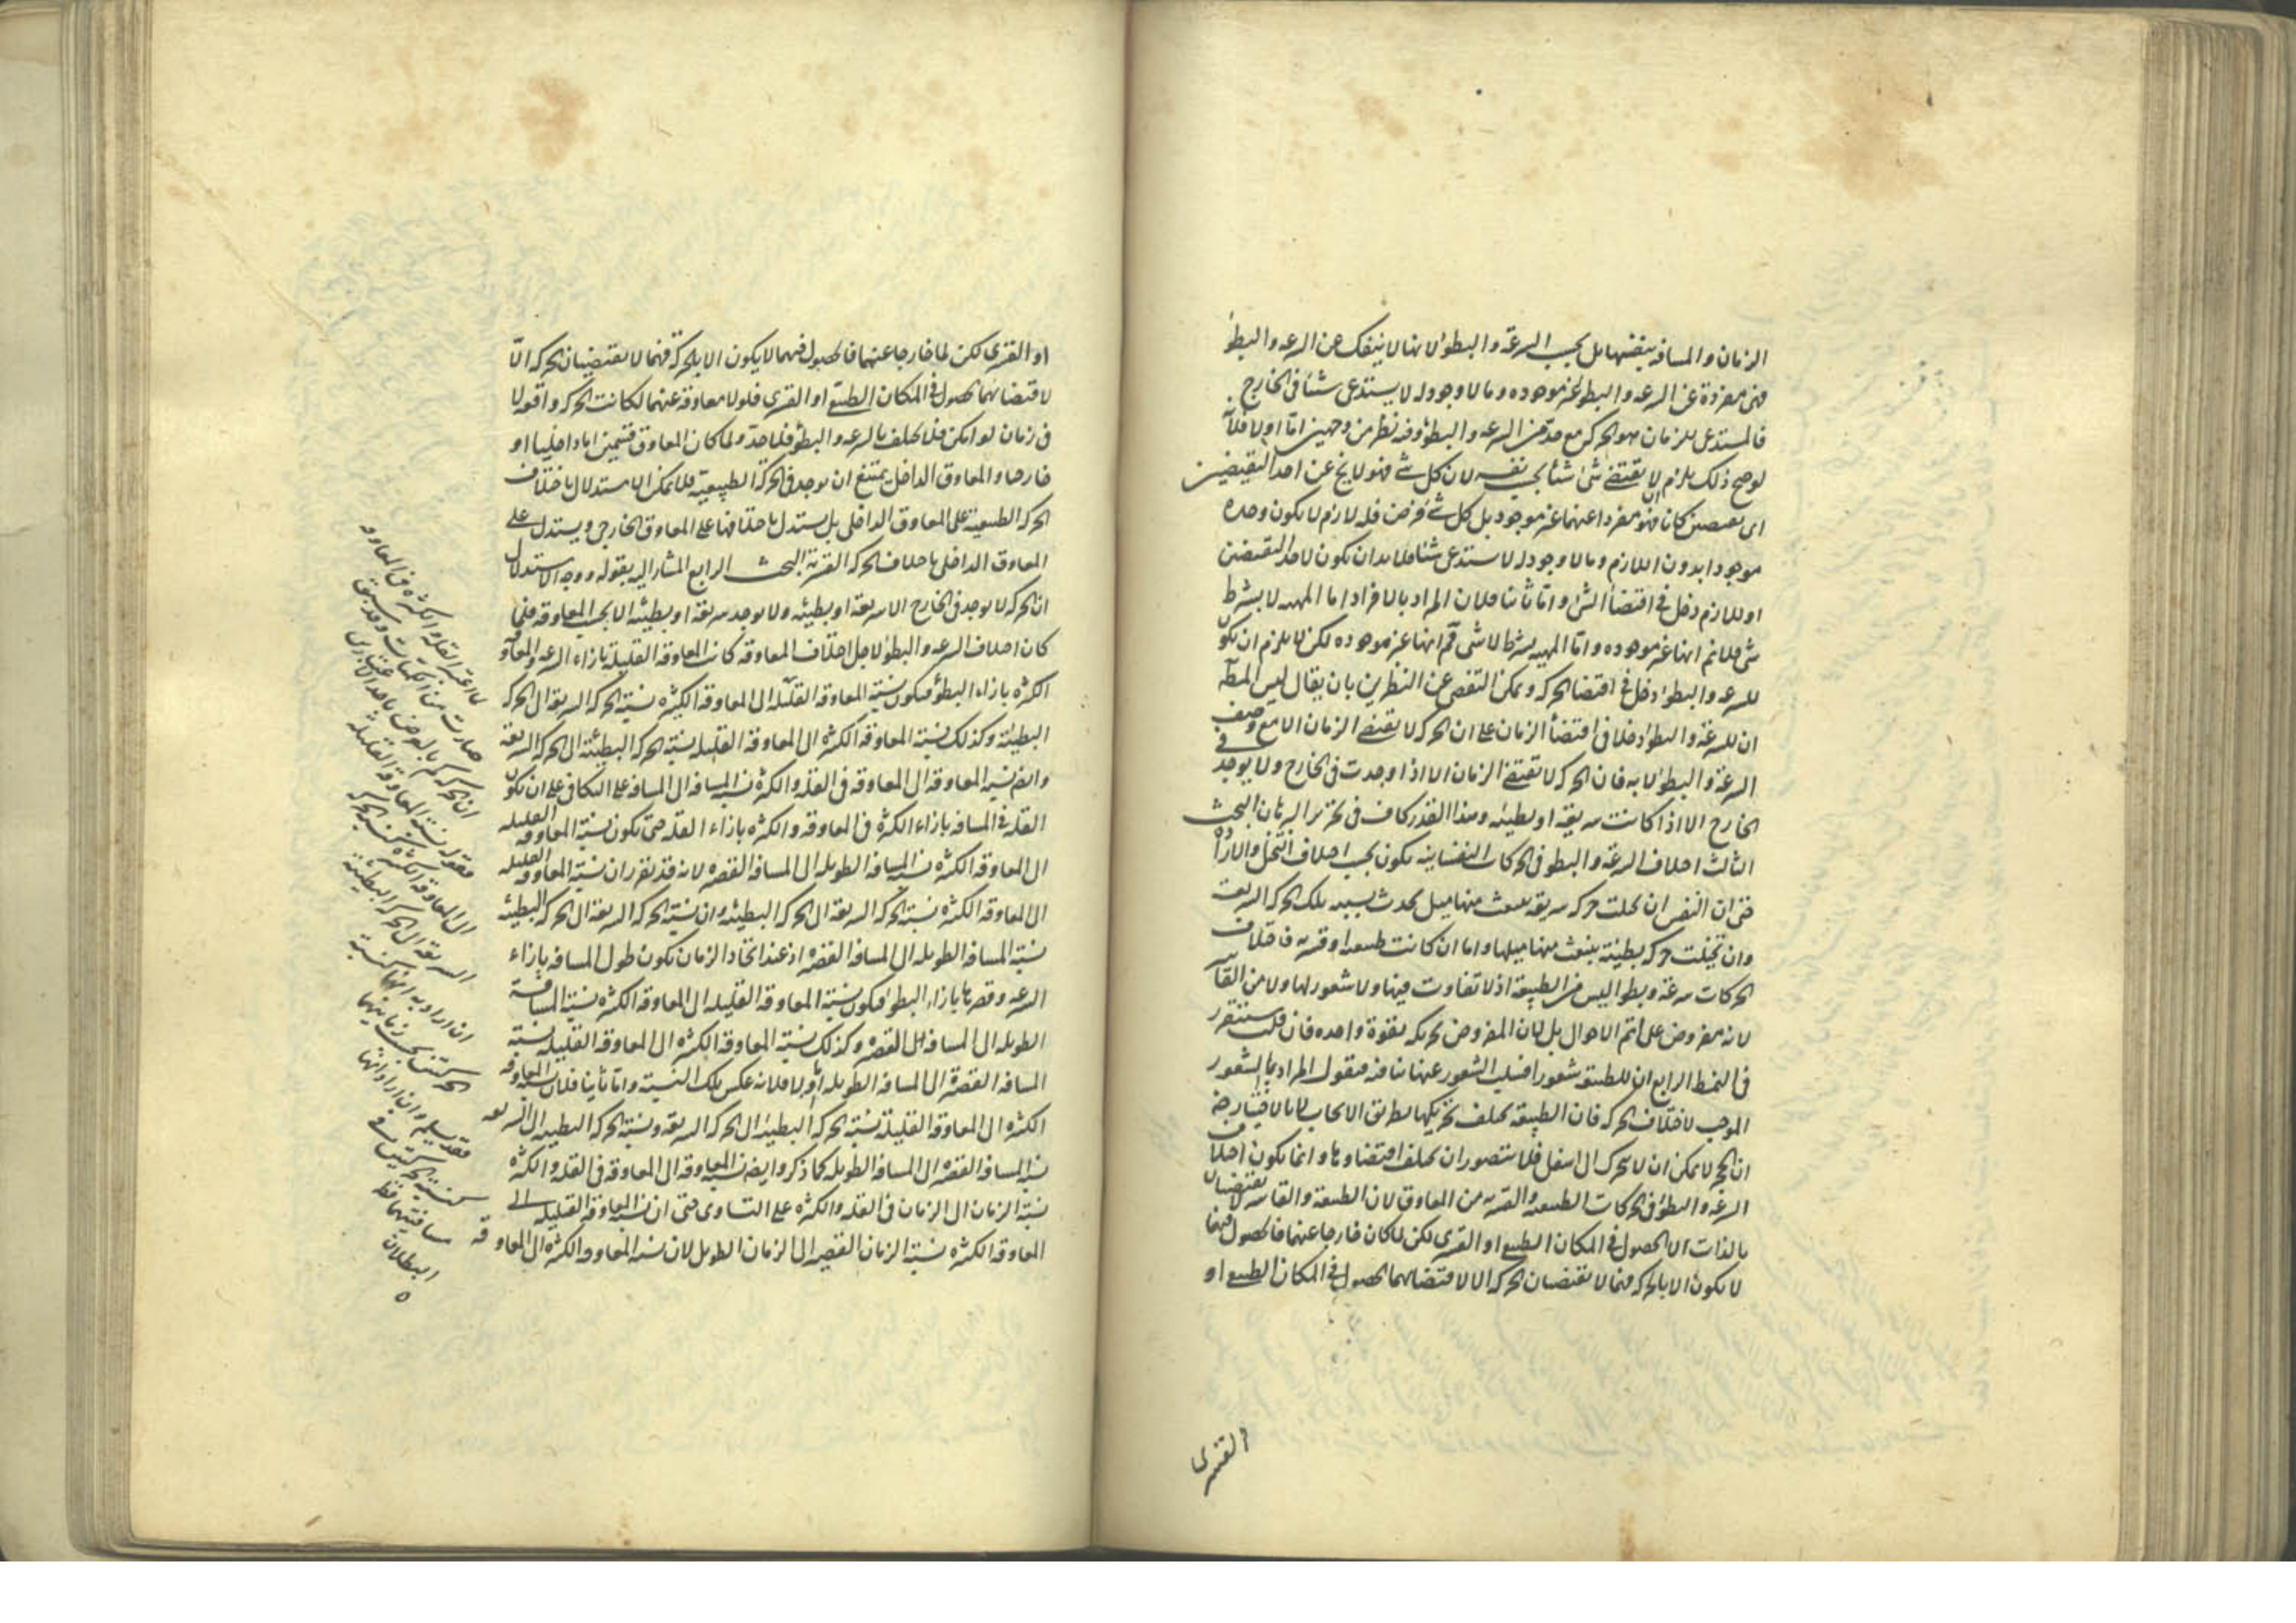 الزمان والمسافة بنفسها بل بحسب السرعة والبطؤ لانها لا ينفك عن السرعة والبطؤ
فهي مفردة عن السرعة والبطؤ غير موجوده وما لا وجود له لا يستدعى شئا فى الخارج
فالمستدعى للزمان هو الحركة مع حد من السرعة والبطؤ وفيه نظر من وجهين اما اولا فلانه
لوصح ذلك يلزم ان لا يقتضى شئ شئا بحسب نفسه لان كل شئ فهو لا يخ عن احد النقيضين
اى نقيضين كان فهو مفردا عنهما غير موجود بل كل شئ فرض فله لازم لا يكون وحده
موجودا بدون اللازم وما لا وجود له لا يستدعى شئا فلا بد ان يكون لاحد النقيضين
او للازم دخل فى اقتضاء الشئ واما ثانيا فلان المراد بالافراد اما المهية لا بشرط
شئ فلانم انها غير موجوده واما المهية بشرط لا شئ فم انها غير موجوده لكن لا يلزم ان يكون
للسرعة والبطؤ دخل فى اقتضا الحركة ويمكن التفصى عن النظرين بان يقال ليس المط
ان للسرعة والبطؤ دخلا فى اقتضأ الزمان على ان الحركة لا تقتضى الزمان الا مع وصف
السرعة والبطؤ لا به فان الحركة لا تقتضى الزمان الا اذا وجدت فى الخارج ولا يوجد فى
الخارج الا اذا كانت سريعة او بطيئه وهذا القدر كاف فى تحرير البرهان البحث
الثالث اختلاف السرعة والبطؤ فى الحركات النفسانية يكون بحسب اختلاف التخيل والارادة
حتى ان النفس ان تخيلت حركة سريعة ينبعث منها ميل يحدث بسببه تلك الحركة السريعة
وان تخيلت حركة بطيئة ينبعث منها ميلها واما ان كانت طبيعية او قسرية فاختلاف
الحركات سرعة وبطوا ليس من الطبيعة اذ لا تفاوت فيها ولا شعور لها ولا من القاسر
لانه مفروض على اتم الاحوال بل لان المفروض تحريكه بقوة واحده فان قلت ستقرر
فى النمط الرابع ان للطبيعة شعورا فسلب الشعور عنها ينافيه فنقول المراد بالشعور
الموجب لاختلاف الحركة فان الطبيعة يختلف تحريكها بطريق الايجاب لا بالاختيار
ان الحجر لا يمكن ان لا يتحرك الى اسفل فلا يتصور ان يختلف اقتضاوها وانما يكون اختلاف
السرعة والبطؤ فى الحركات الطبيعية والقسرية من المعاوق لان الطبيعة والقاسر لا يقتضيان
بالذات الا الحصول فى المكان الطبيعى او القسرى لكن لما كان خارجا عنهما فالحصول فيهما
لا يكون الا بالحركة فهما لا يقتضيان الحركة الا لاقتضائهما الحصول فى المكان الطبيعى او
القسرى
او القسرى لكن لما خارجا عنهما فالحصول فيهما لا يكون الا بالحركة فهما لا يقتضيان الحركة الا
لاقتضائهما الحصول فى المكان الطبيعى او القسرى فلولا معاوقة عنهما لكانت الحركة واقعة لا
فى زمان لو امكن فلا يختلف بالسرعة والبطؤ فلا حد ولما كان المعاوق قسمين اما داخليا او
خارجيا والمعاوق الداخلى يمتنع ان يوجد فى الحركة الطبيعية فلا يمكن الاستدلال باختلاف
الحركة الطبيعية على المعاوق الداخلى بل يستدل باختلافها على المعاوق الخارجى ويستدل على
المعاوق الداخلى باختلاف الحركة القسرية البحث الرابع المشار اليه بقوله ووجه الاستدلال
ان الحركة لا يوجد فى الخارج الا سريعة او بطيئه ولا يوجد سريعة او بطيئة الا بحسب المعاوقة فلما
كان اختلاف السرعة والبطؤ لاجل اختلاف المعاوقة كانت المعاوقة القليلة بازاء السرعة والمعاوقة
الكثيرة بازاء البطؤ فيكون نسبة المعاوقة القليلة الى المعاوقة الكثيرة نسبة الحركة السريعة الى الحركة
البطيئة وكذلك نسبة المعاوقة الكثيرة الى المعاوقة القليلة نسبة الحركة البطيئة الى الحركة السريعة
وايضا نسبة المعاوقة الى المعاوقة فى القلة والكثرة نسبة المسافة الى المسافة على التكافى على ان يكون
القلة فى المسافة بازاء الكثرة فى المعاوقة والكثرة بازاء القلة حتى يكون نسبة المعاوقة القليلة
الى المعاوقة الكثيرة نسبة المسافة الطويلة الى المسافة القصيرة لانه قد تقرر ان نسبة المعاوقة القليلة
الى المعاوقة الكثيرة نسبة الحركة السريعة الى الحركة البطيئة وان نسبة الحركة السريعة الى الحركة البطيئة
نسبة المسافة الطويلة الى المسافة القصيرة اذ عند اتحاد الزمان يكون طول المسافة بازاء
السرعة وقصرها بازاء البطؤ فيكون نسبة المعاوقة القليلة الى المعاوقة الكثيرة نسبة المسافة
الطويلة الى المسافة القصيرة وكذلك نسبة المعاوقة الكثيرة الى المعاوقة القليلة نسبة
المسافة القصيرة الى المسافة الطويلة اما اولا فلانه عكس تلك النسبة واما ثانيا فلان نسبة المعاوقة
الكثيرة الى المعاوقة القليلة نسبة الحركة البطيئة الى الحركة السريعة ونسبة الحركة البطيئة الى السريعة
نسبة المسافة القصيرة الى المسافة الطويلة كما ذكر وايضا نسبة المعاوقة الى المعاوقة فى القلة والكثرة
نسبة الزمان الى الزمان فى القلة والكثرة على التساوى حتى ان نسبة المعاوقة القليلة الى
المعاوقة الكثيرة نسبة الزمان القصير الى الزمان الطويل لان نسبة المعاوقة الكثيرة الى المعاوقة
لما اعتبر القلة والكثرة فى المعاوقة
صارت من الكميات وقد سبق
ان الحركة كم بالعرض
فنقول نسبة المعاوقة القليلة
الى المعاوقة الكثيرة كنسبة الحركة
السريعة الى الحركة البطيئة
ان اراد به انها كنسبة
الحركتين بحسب زمانيهما
فقد سلم وان اراد انها
كنسبة الحركتين
مسافتيهما فظ
البطلان